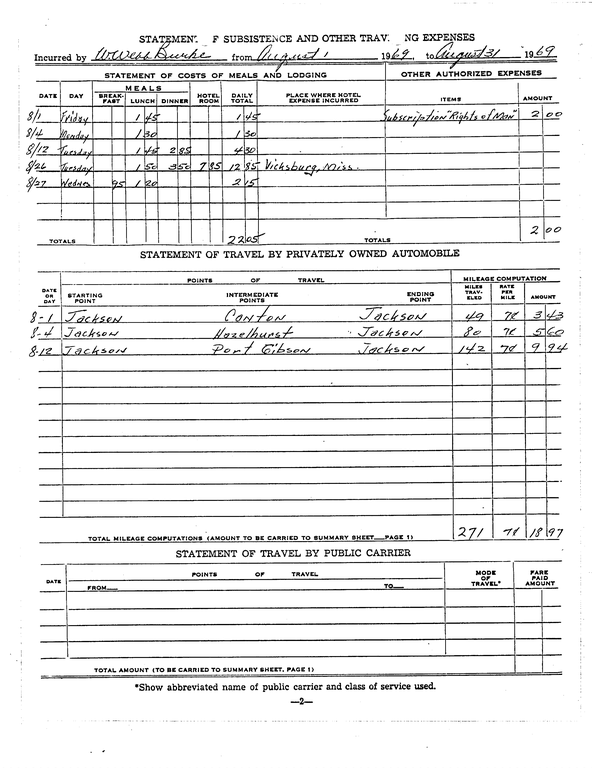 STATEMEN F SUBSISTENCE AND OTHER TRAV NG EXPENSES
Incurred by W Webb Burke from August 1 1969, to August 31 1969
STATEMENT OF COSTS OF MEALS AND LODGING OTHER AUTHORIZED EXPENSES
DATE DAY MEALS BREAK-FAST LUNCH DINNER HOTEL ROOM DAILY TOTAL PLACE WHERE HOTEL EXPENSE INCURRED ITEMS AMOUNT
8/1 Friday 1 45 1 45 Subscription "Rights of Man" 2 00
8/4 Monday 1 30 1 30
8/12 Tuesday 1 45 2 85 4 30
8/26 Tuesday 1 50 3 50 7 85 12 85 Vicksburg, Miss.
8/27 Wednes 95 1 20 2 15
TOTALS 22 05 TOTALS 2 00
STATEMENT OF TRAVEL BY PRIVATELY OWNED AUTOMOBILE
POINTS OF TRAVEL MILEAGE COMPUTATION
DATE OR DAY STARTING POINT INTERMEDIATE POINTS ENDING POINT MILES TRAV-ELED RATE PER MILE AMOUNT
8-1 Jackson Canton Jackson 49 7¢ 3 43
8-4 Jackson Hazelhurst Jackson 80 7¢ 5 60
8-12 Jackson Port Gibson Jackson 142 7¢ 9 94
TOTAL MILEAGE COMPUTATIONS (AMOUNT TO BE CARRIED TO SUMMARY SHEET—PAGE 1) 271 7¢ 18 97
STATEMENT OF TRAVEL BY PUBLIC CARRIER
DATE POINTS OF TRAVEL MODE OF TRAVEL* FARE PAID AMOUNT
FROM— TO—
TOTAL AMOUNT (TO BE CARRIED TO SUMMARY SHEET, PAGE 1)
*Show abbreviated name of public carrier and class of service used.
—2—